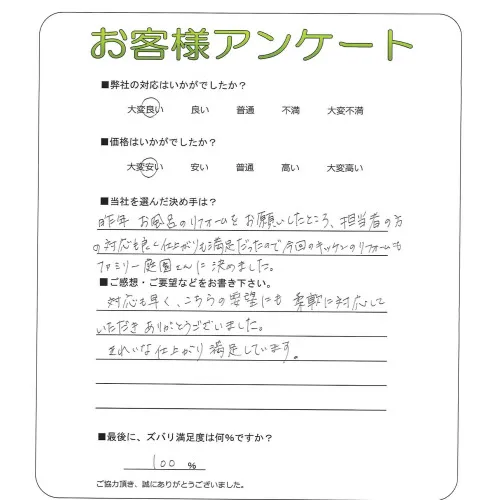 お客様アンケート
■弊社の対応はいかがでしたか？
大変良い 良い 普通 不満 大変不満
■価格はいかがでしたか？
大変安い 安い 普通 高い 大変高い
■当社を選んだ決め手は？
昨年 お風呂のリフォームをお願いしたところ、担当者の方
の対応も良く仕上がりも満足だったので今回のキッチンのリフォームも
ファミリー庭園さんに決めました。
■ご感想・ご要望などをお書き下さい。
対応も早く、こちらの要望にも柔軟に対応して
いただきありがとうございました。
きれいな仕上がり満足しています。
■最後に、ズバリ満足度は何%ですか？
100 %
ご協力頂き、誠にありがとうございました。